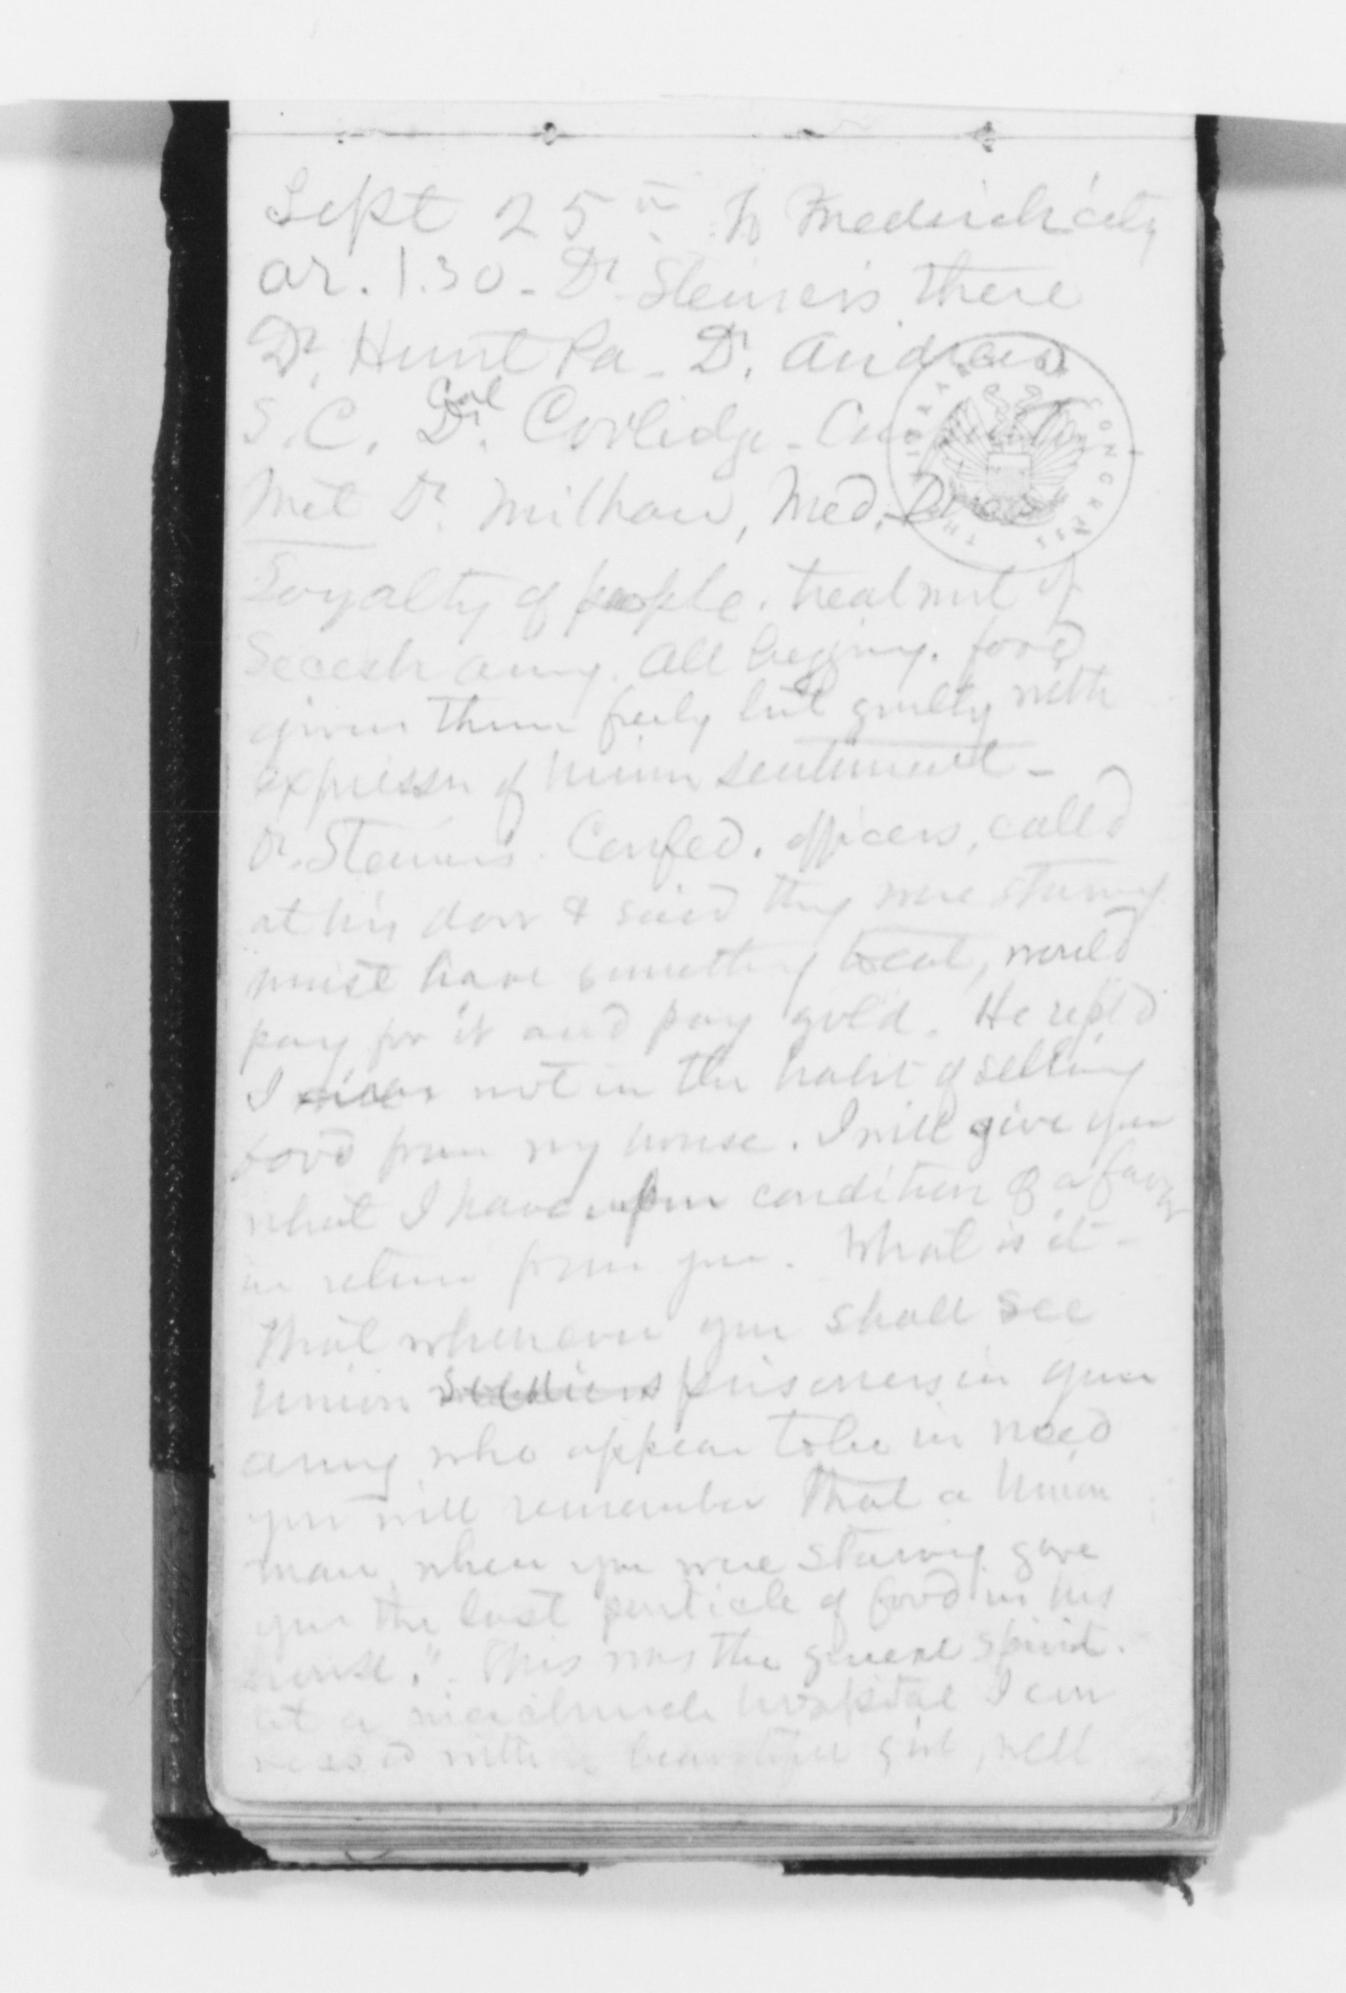 Sept 25th To Frederick city
ar. 1.30 - Dr Steiners there
Dr. Hunt Pa - Dr. Andrews
S.C. Dr. Coolidge -
Met Dr. Milhau, Med.
Loyalty of people. treatment of
Secesh army. All begging. food
given them freely but guilty with
expressn of Union sentiment -
Dr. Steiners. Confed. officers, called
at his door & said they were starving
must have something to eat, would
pay for it and pay gold. He repld
I not in the habit of selling
food from my house. I will give you
what I have upon condition of a favor
in return from you. What is it -
That whenever you shall see
Union soldiers prisoners in your
army who appear to be in need
you will remember that a Union
man when you were starving gave
you the last particle of food in his
house." This was the general spirit.
At a church hospital I con
versd with a beautiful girl, well
THE LIBRARY OF CONGRESS